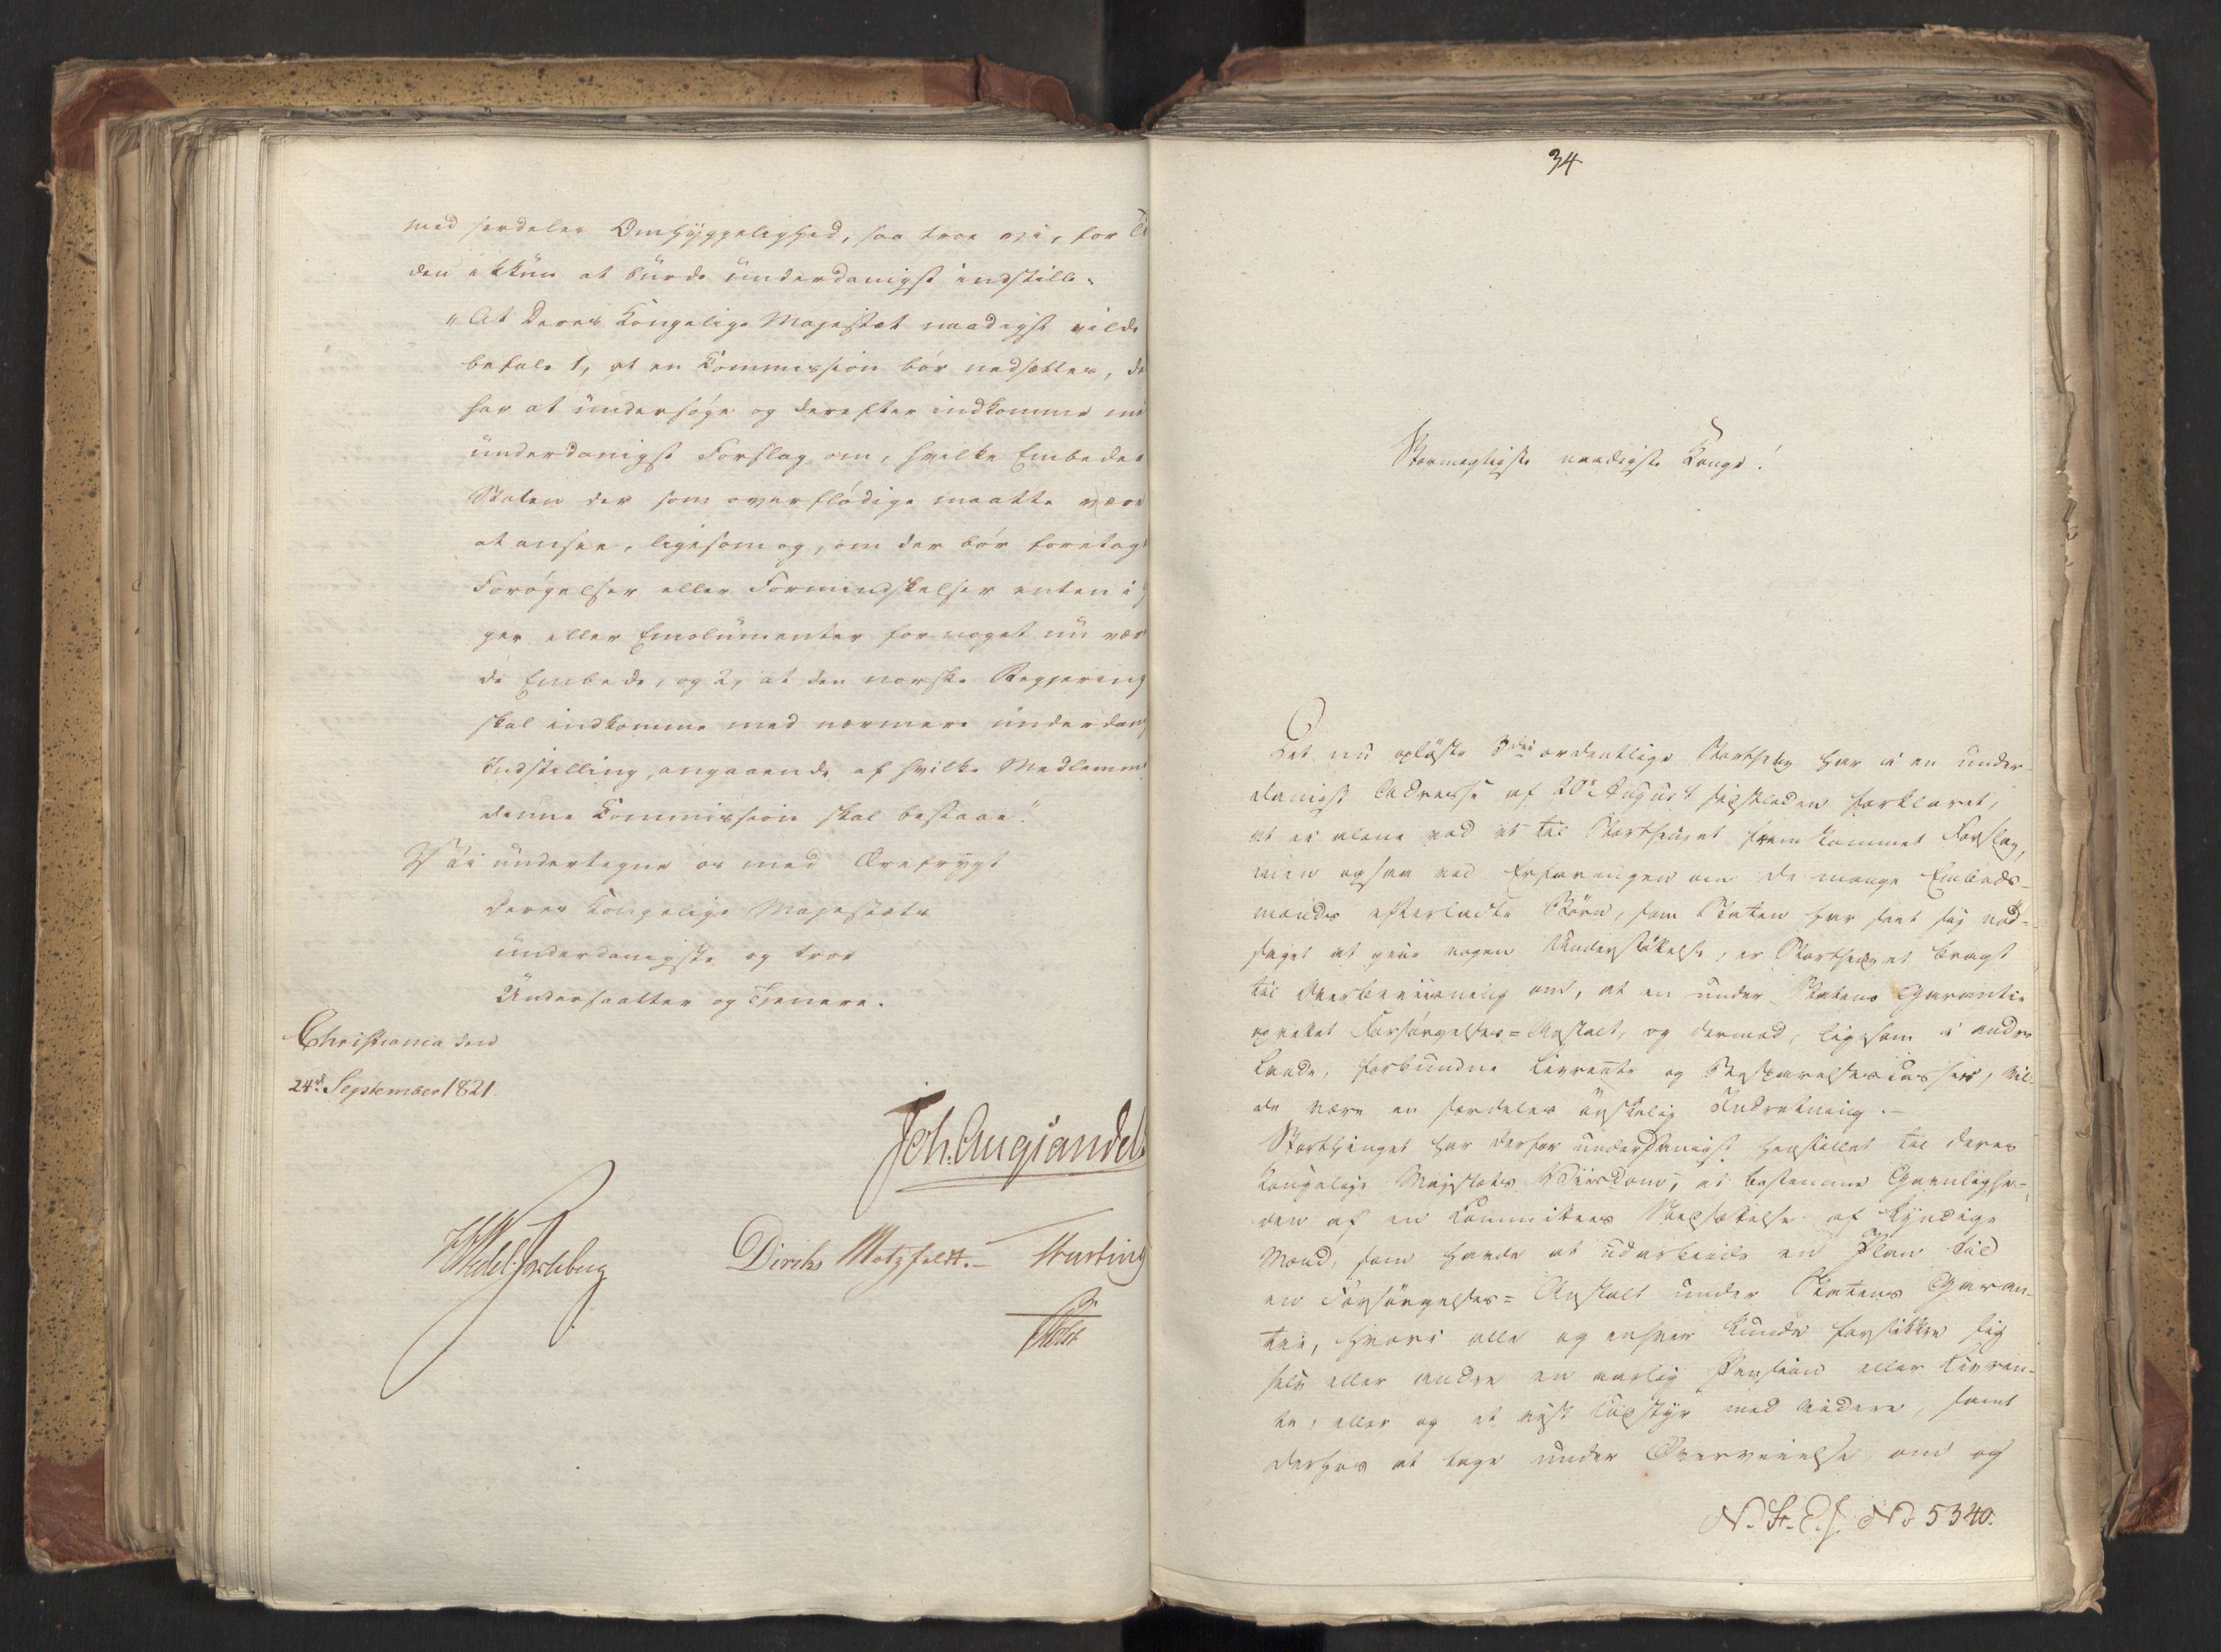 med serdeles Omhyggelighed, saa troe vi, for Ti
den ikkun at burde ünderdanigst indstille:
"At Deres Kongelige Majestæt naadigst vilde
befale 1, at en Kommission bör nedsættes, de
har at ündersöge og derefter indkomme me
ünderdanigst Forslag om, hvilke Embeder
Staten der som overflödige maatte være
at ansee, ligesom og, om der bör foretag
Forögelser eller Formindskelser enten i
ger eller Emolümenter for noget nü vær
de Embede, og 2, at den norske Regjering
skal indkomme med nærmere ünderdan
Indstilling, angaaende, af hvilke Medlemm
denne Kommission skal bestaae."
Vi ündertegne os med Ærefrygt
Deres Kongelige Majestæts
ünderdanigste og troe
Ündersaatter og Tjenere.
Christiania den
24de September 1821.
Joh. Aug Sandels
Wedel Jarlsberg
Dircks Motzfeldt.
34
Stormægtigste naadigste Konge!
Det nu oplöste 3die ordentlige Storthing har i en under-
danigst Addresse af 20de August sidstleden forklaret,
at ei alene ved et til Storthinget fremkommet Forslag,
men ogsaa ved Erfaringen om de mange Embeds-
mænds efterladte Börn, som Staten har seet sig nöd-
saget at give nogen Understöttelse, er Storthinget bragt
til Overbeviisning om, at en under Statens Garantie
oprettet Forsörgelses-Anstalt, og dermed, ligesom i andre
Lande, forbundne Livrente og Besparelsescasser, vil-
de være en særdeles önskelig Indretning.-
Storthinget har derfor underdanigst henstillet til Deres
Kongelige Majestæts Viisdom, at bestemme Gavnlighe-
den af en Committees Nedsættelse af kyndige
Mænd, som havde at udarbeide en Plan til
en Forsörgelses-Anstalt under Statens Garan-
tie, hvori alle og enhver kunde forsikkre sig
selv eller andre en aarlig Pension eller Livren-
te, eller og et vist Udstyr med videre, samt
derhos at tage under Overveielse, om og
N. St. E. J. No 5340.